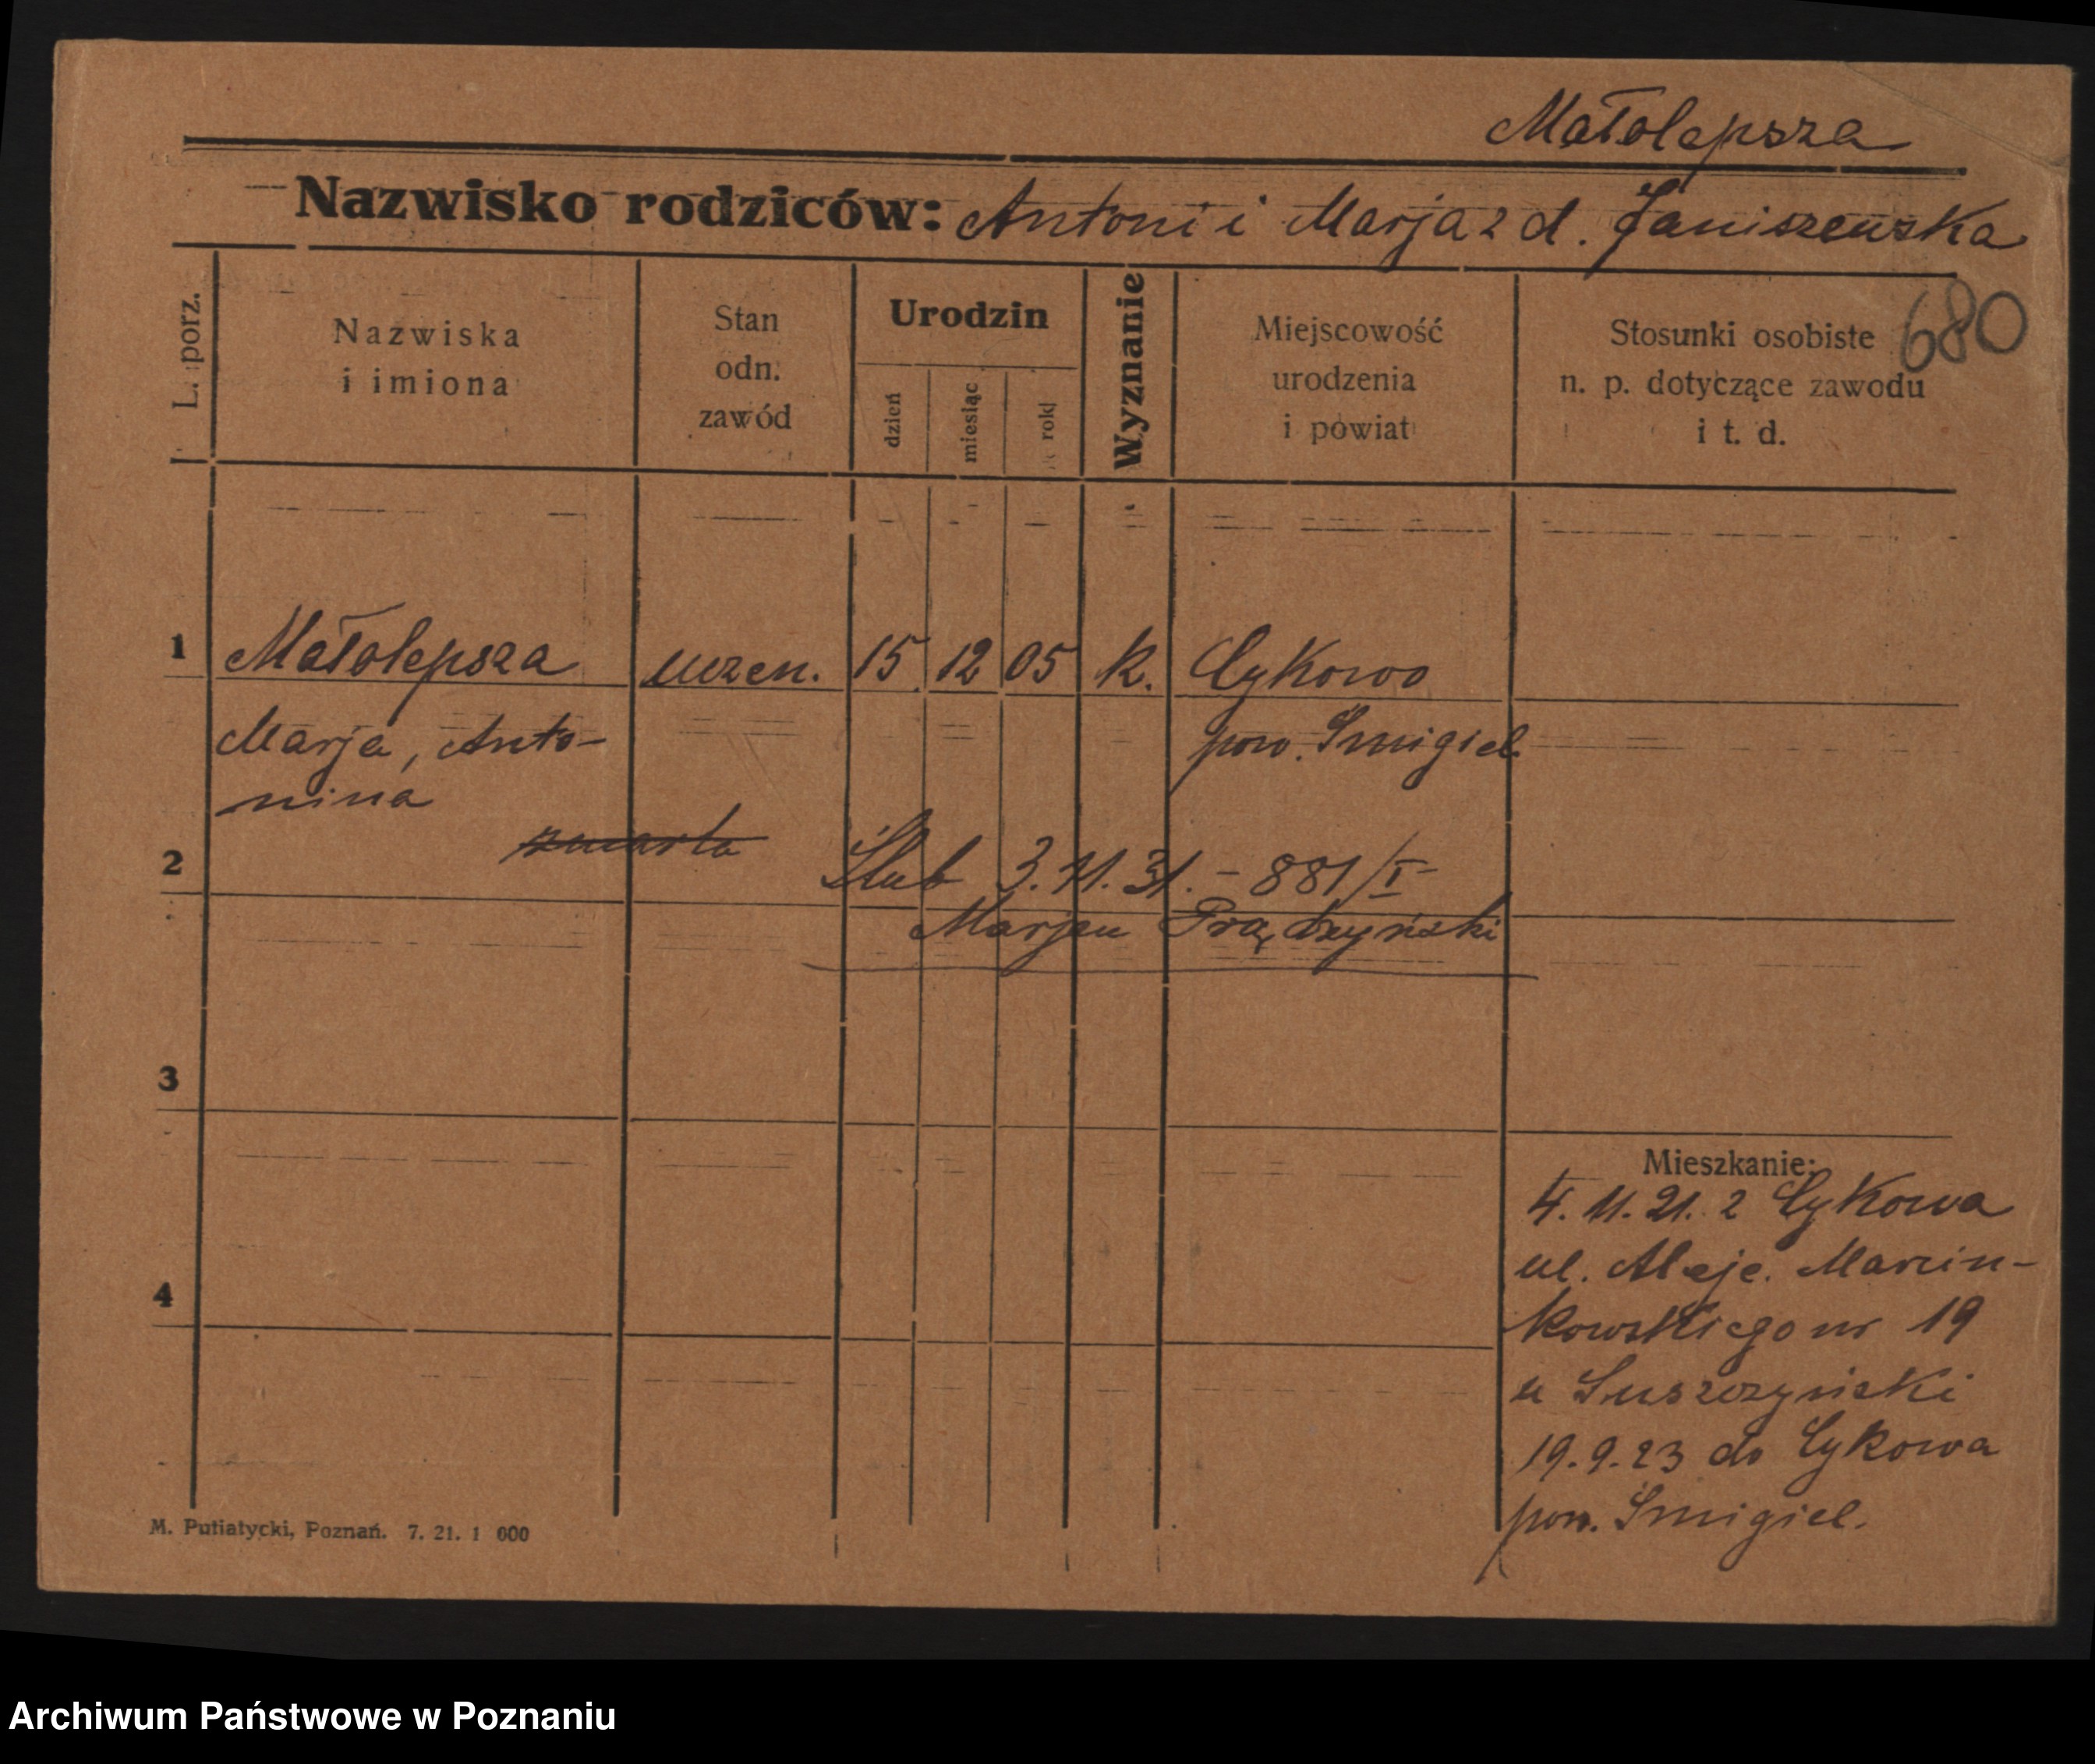 Małolepsza
Nazwisko rodziców: Antoni i Marja z d. Janiszewska
680
L. porz.
Nazwiska
i imiona
Stan
odn.
zawód
Urodzin
dzień
miesiąc
rok
Wyznanie
Miejscowość
urodzenia
i powiat
Stosunki osobiste
n. p. dotyczące zawodu
i t. d.
1 Małolepsza uczen. 15 12 05 k. Cykowo
Marja, Anto-
nina
pow. Śmigiel
zmarła
2
Ślub 3.11.31. - 881/I
Marjan Prądzyński
3
4
Mieszkanie:
4.11.21. z Cykowa
ul. Aleje. Marcin-
kowskiego nr 19
u Suszczyński
19.9.23 do Cykowa
pow. Śmigiel.
M. Putiatycki, Poznań. 7. 21. 1 000
Archiwum Państwowe w Poznaniu